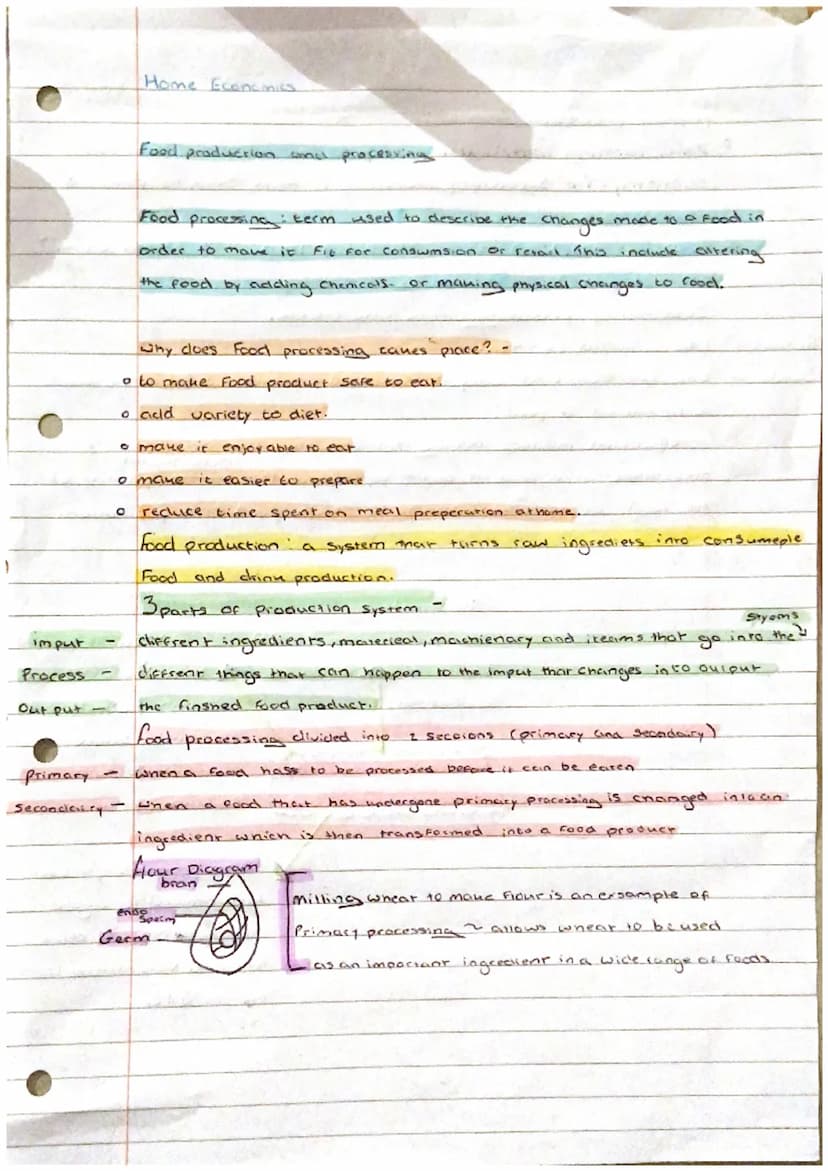 Home Economics
Food production and processing
Food processing : term used to describe the changes made to a food in
order to make it fit for consumsion or retail. This include altering
the food by adding chemicals. or making physical changes to food.
why does food processing takes place? -
o to make food product safe to eat.
o add variety to diet.
o make it enjoyable to eat
o make it easier to prepare
o reduce time spent on meal preperation at home.
food production : a system that turns raw ingrediets into consumeple
food and drink production.
3 parts of production system -
imput - diffrent ingredients, matereal, machienary and iteams that go into the
Process - diffrent things that can happen to the imput that changes into output
Out put - the finshed food product.
food processing divided into 2 secsions (primary and secondairy)
primary - when a food hass to be processed before it can be eaten
secondairy - when a food that has undergone primary processing is changed into an
ingredient which is then transformed into a food product
flour Diagram
bran
endo sperm
Germ
Milling wheat to make flour is an exsample of
Primary processing ~ allows wheat to be used
as an important ingredient in a wide range of foods